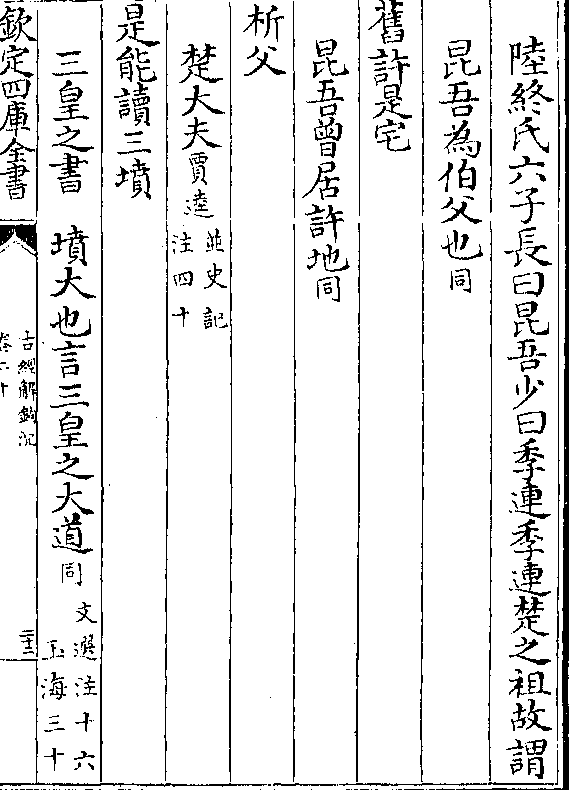 陸終氏六子長曰昆吾少曰季連季連楚之祖故謂
昆吾為伯父也同
舊許是宅
昆吾曾居許地同
析父
楚大夫賈逵並史記注四十
是能讀三墳
三皇之書　墳大也言三皇之大道同文選注十六玉海三十
欽定四庫全書
古經解鉤沉
卷二十
三十三